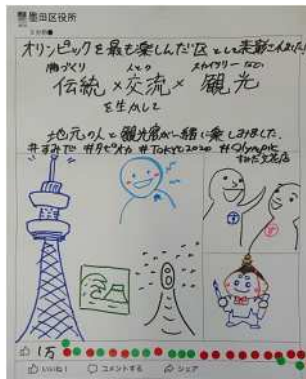 墨田区役所
オリンピックを最も楽しんだ区として表彰されました!
物づくり 人との スカイツリーなど
伝統 × 交流 × 観光
を生かして
地元の人と観光客が一緒に楽しみました。
#すみだ #タピオカ #Tokyo2020 #Olympic
1万
いいね! コメントする シェア